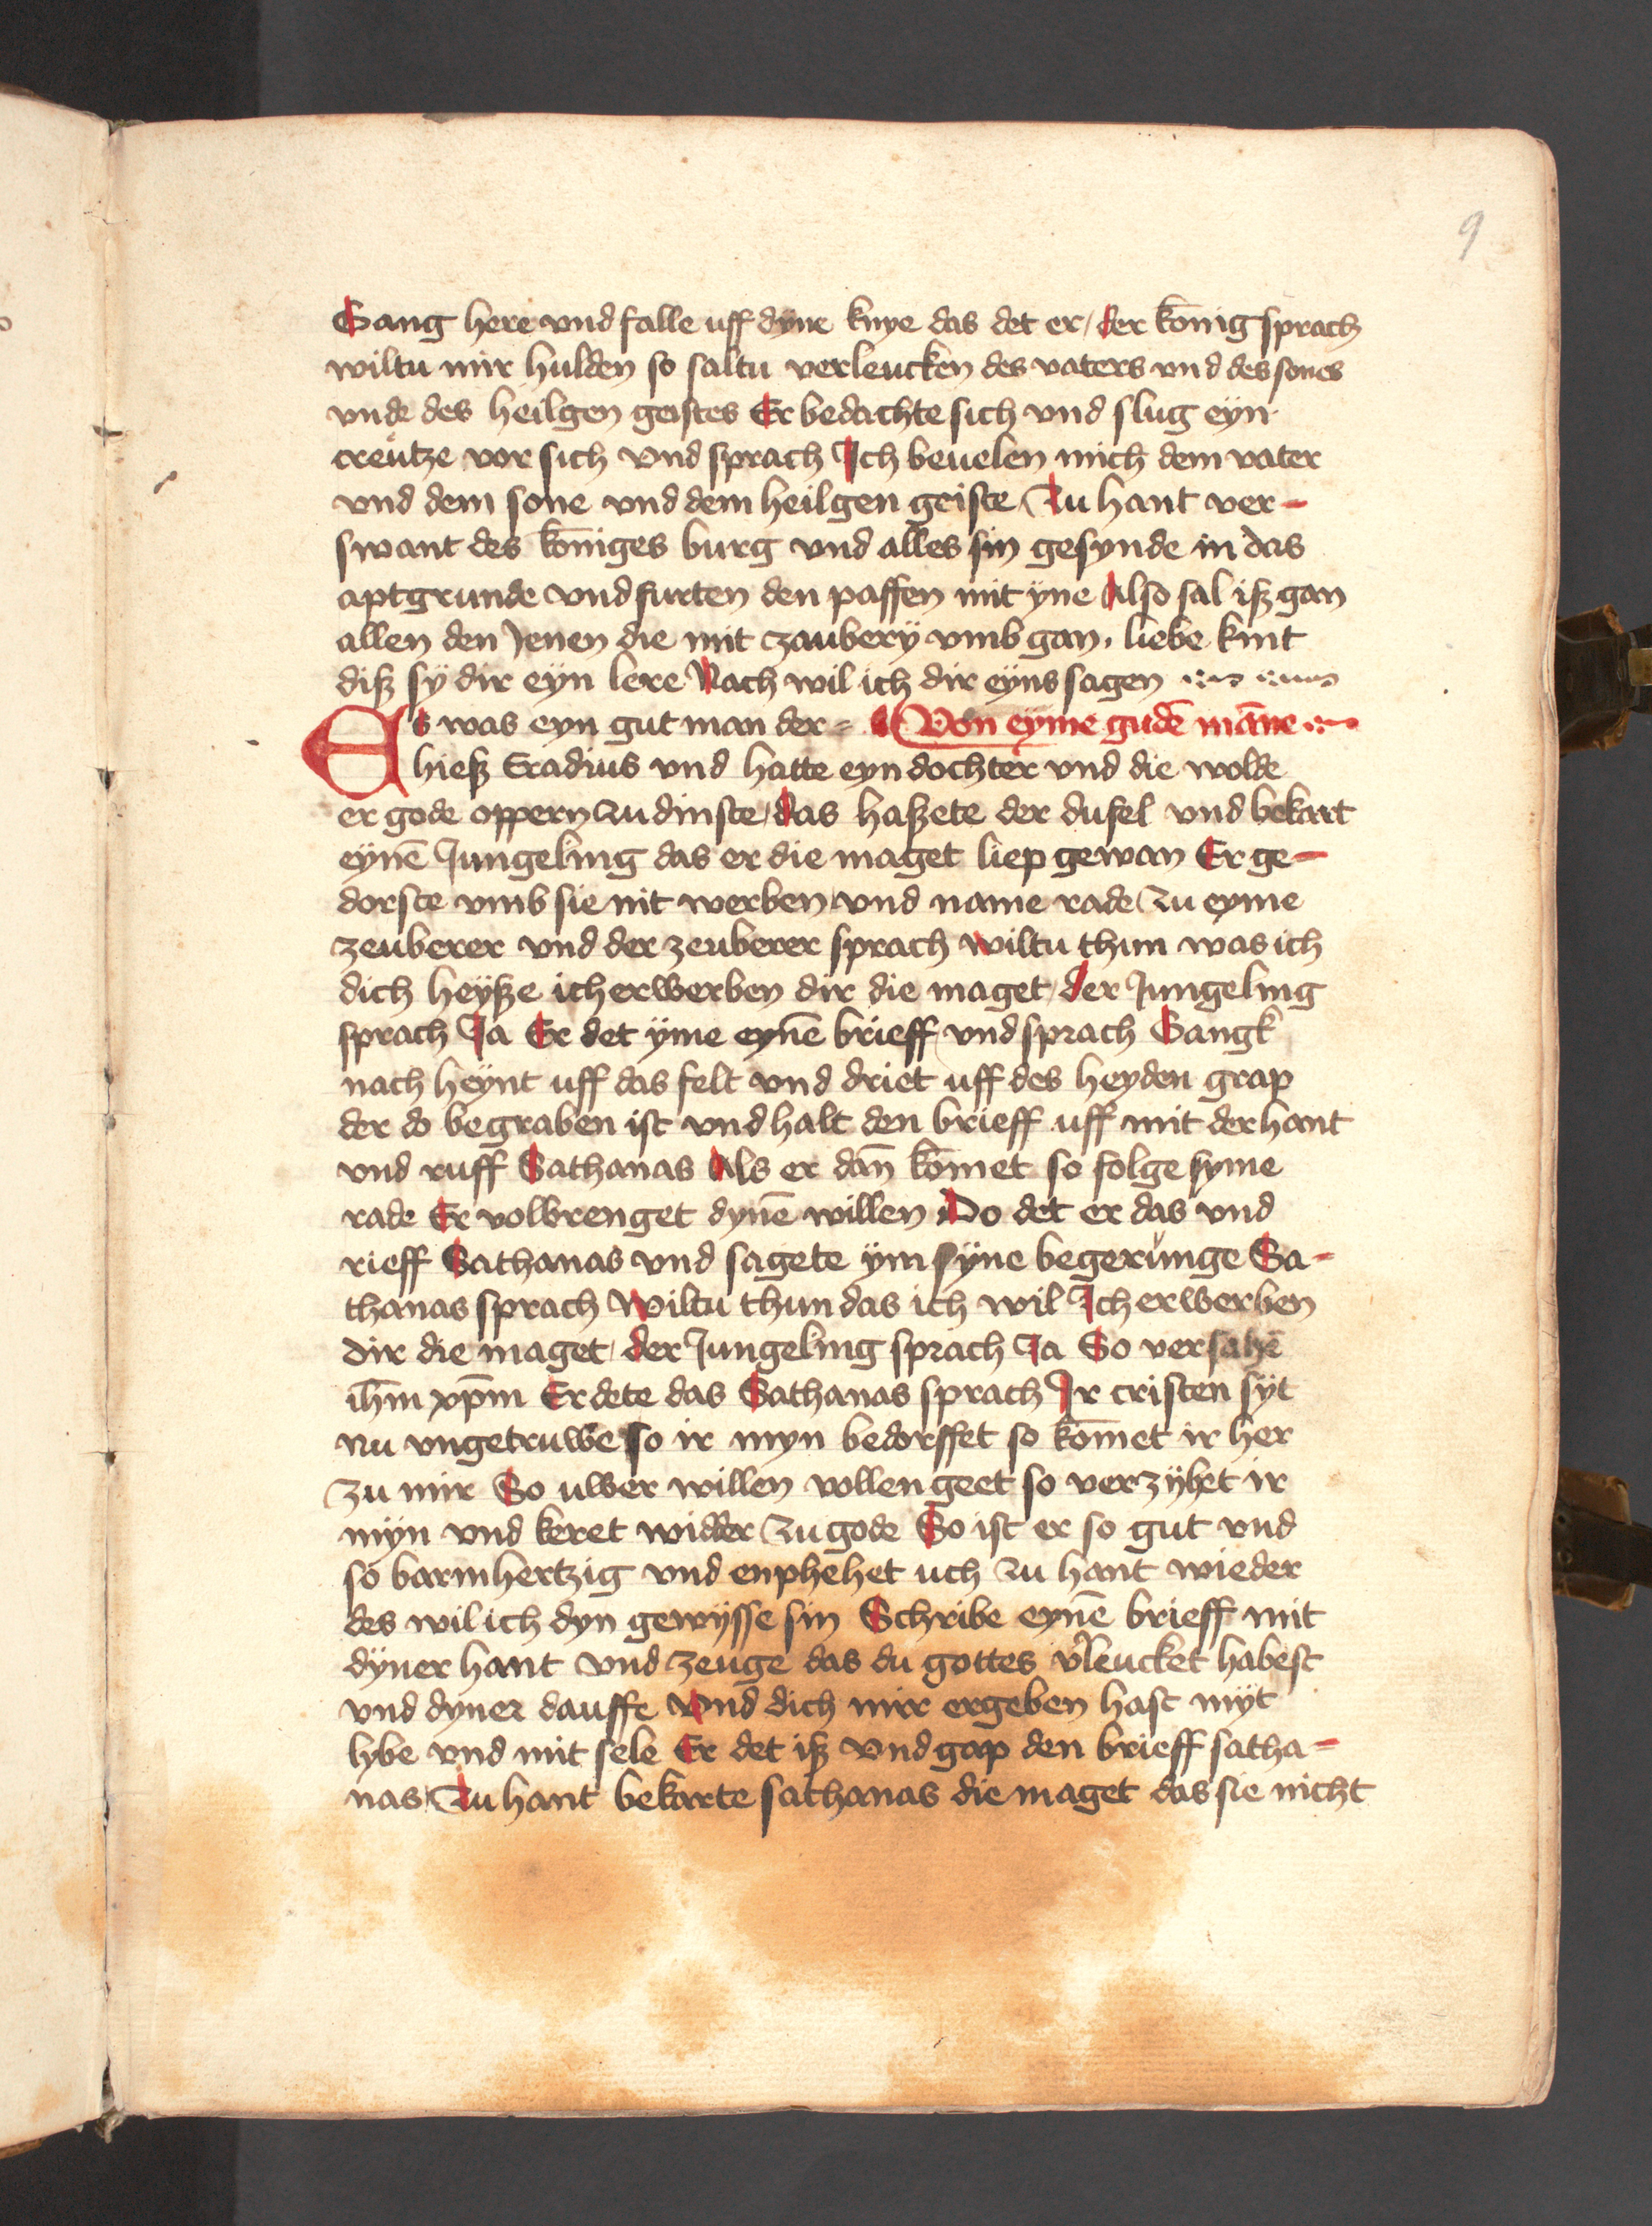 9
Gang here vnd falle uff dyne knye das det er / der konig sprach
wiltu mir hulden so saltu verleucken des vaters vnd des sones
vnde des heilgen geistes Er bedachte sich vnd slug eyn
creutze vor sich vnd sprach Ich beuelen mich dem vater
vnd dem sone vnd dem heilgen geiste Zu hant ver-
swant des koniges burg vnd alles sin gesynde in das
aptgrunde vnd furten den paffen mit yne Also sal iß gan
allen den Jenen die mit czaubery vmb gan. liebe kint
diß sy dir eyn lere Nach wil ich dir eyns sagen
Es was eyn gut man der = Von eyme gudē māne
hieß Eradius vnd hatte eyn dochter vnd die wolde
er gode oppern zu dinste / das haßete der dufel vnd bekart
eynē Jungeling das er die maget liep gewan Er ge-
dorste vmb sie nit werben vnd name rade zu eyme
zeuberer vnd der zeuberer sprach wiltu thun was ich
dich heyße ich erwerben dir die maget / der Jungeling
sprach Ja Er det yme eynē brieff vnd sprach Gangk
nach heynt uff das felt vnd driet uff des heyden grap
der do begraben ist vnd halt den brieff uff mit der hant
vnd ruff Sathanas Als er dañ kōmet so folge syme
rade Er volbrenget dynē willen Do det er das vnd
rieff Sathanas vnd sagete ym syne begerunge Sa-
thanas sprach Wiltu thun das ich wil Ich erwerben
dir die maget / der Jungeling sprach Ja So versahē
ihm̄ xp̄m Er dete das Sathanas sprach Ir cristen syt
nu vngetruwe so ir myn bedorffet so kōmet ir her
zu mir So uwer willen vollen geet so verzyhet ir
myn vnd keret widder zu gode So ist er so gut vnd
so barmhertzig vnd enphehet uch zu hant wieder
des wil ich dyn gewysse sin Schribe eynē brieff mit
dyner hant vnd zeuge das du gottes v̓leucket habest
vnd dyner dauffe Vnd dich mir ergeben hast myt
lybe vnd mit sele Er det iß vnd gap den brieff satha-
nas Zu hant bekarte sathanas die maget das sie nicht